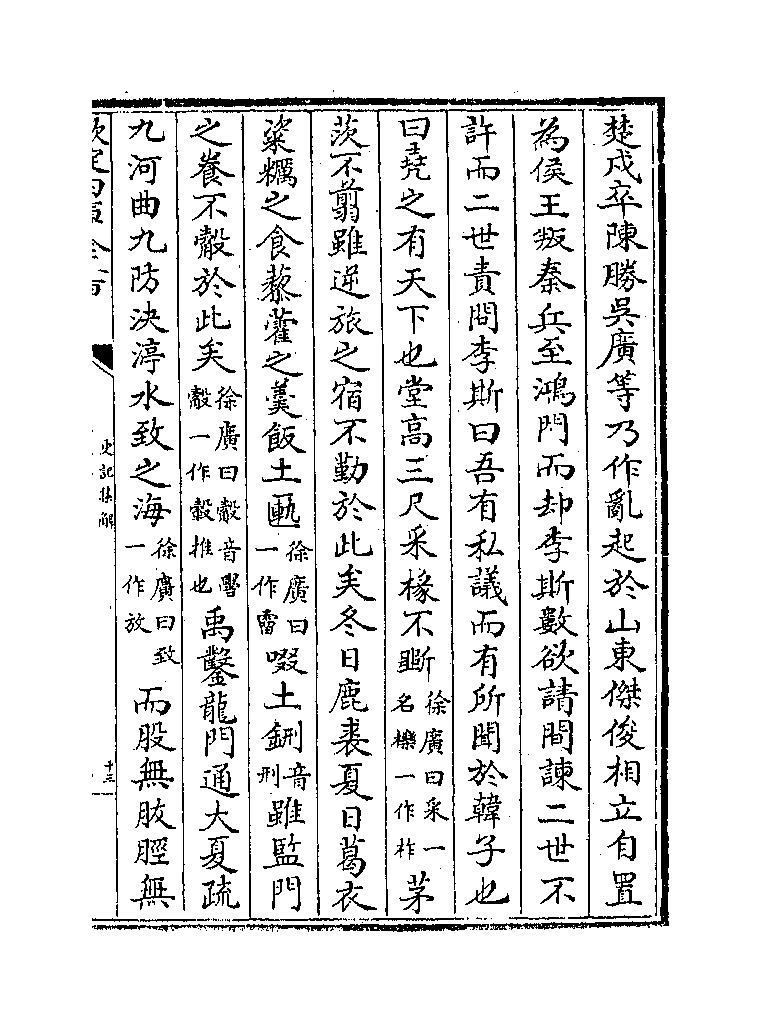 楚戍卒陳勝吳廣等乃作亂起於山東傑俊相立自置
為侯王叛秦兵至鴻門而却李斯數欲請間諫二世不
許而二世責問李斯曰吾有私議而有所聞於韓子也
曰堯之有天下也堂高三尺采椽不斲徐廣曰采一名櫟一作柞茅
茨不翦雖逆旅之宿不勤於此矣冬日鹿裘夏日葛衣
粢糲之食藜藿之羹飯土匭徐廣曰一作霤啜土鉶音刑雖監門
之養不觳於此矣徐廣曰觳音學觳一作轂推也禹鑿龍門通大夏疏
九河曲九防決渟水致之海徐廣曰致一作放而股無胈脛無
欽定四庫全書
史記集解
十三